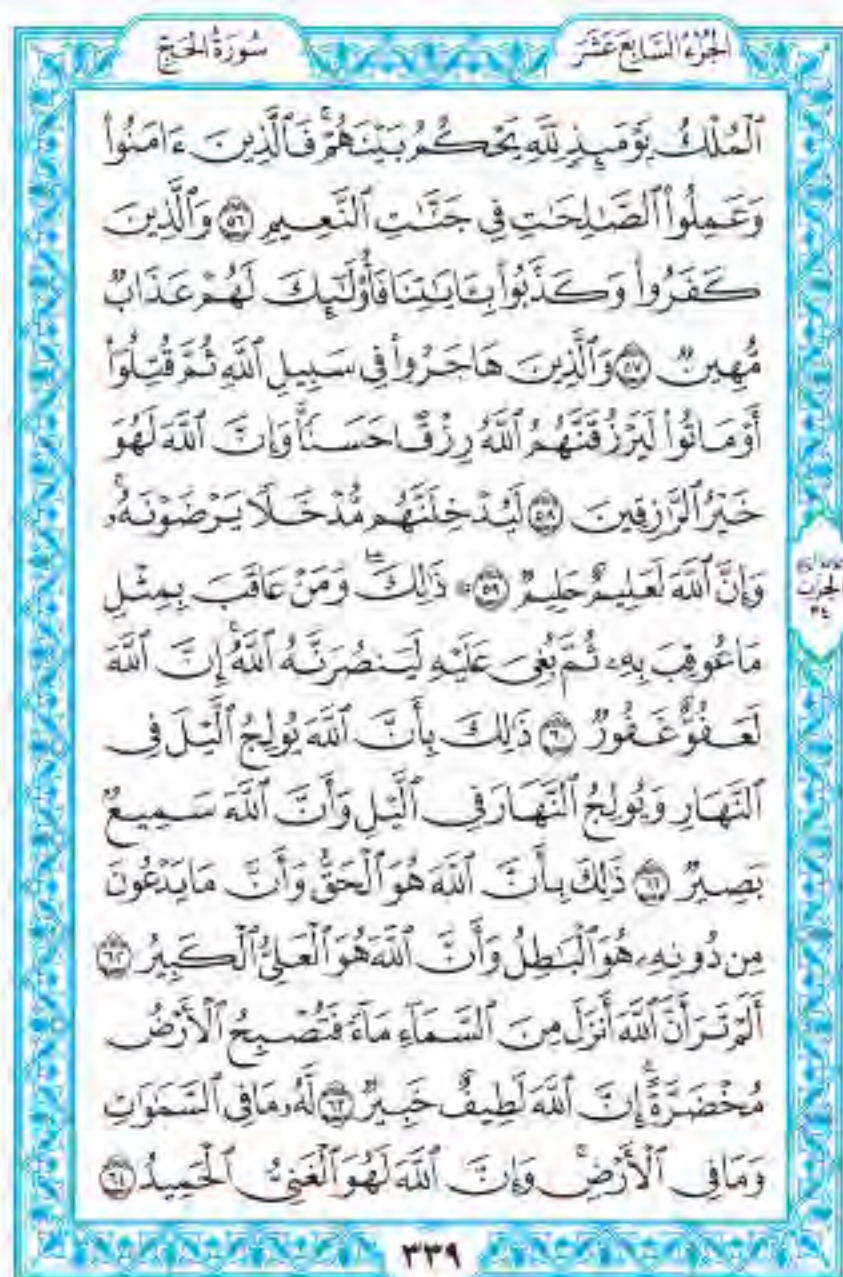 الجزء السابع عشر
سورة الحج
ٱلْمُلْكُ يَوْمَئِذٍ لِّلَّهِ يَحْكُمُ بَيْنَهُمْ ۚ فَٱلَّذِينَ ءَامَنُوا۟
وَعَمِلُوا۟ ٱلصَّـٰلِحَـٰتِ فِى جَنَّـٰتِ ٱلنَّعِيمِ ٥٦ وَٱلَّذِينَ
كَفَرُوا۟ وَكَذَّبُوا۟ بِـَٔايَـٰتِنَا فَأُو۟لَـٰٓئِكَ لَهُمْ عَذَابٌ
مُّهِينٌ ٥٧ وَٱلَّذِينَ هَاجَرُوا۟ فِى سَبِيلِ ٱللَّهِ ثُمَّ قُتِلُوٓا۟
أَوْ مَاتُوا۟ لَيَرْزُقَنَّهُمُ ٱللَّهُ رِزْقًا حَسَنًا ۚ وَإِنَّ ٱللَّهَ لَهُوَ
خَيْرُ ٱلرَّٰزِقِينَ ٥٨ لَيُدْخِلَنَّهُم مُّدْخَلًا يَرْضَوْنَهُۥ ۗ
وَإِنَّ ٱللَّهَ لَعَلِيمٌ حَلِيمٌ ٥٩ ۞ ذَٰلِكَ ۖ وَمَنْ عَاقَبَ بِمِثْلِ
مَا عُوقِبَ بِهِۦ ثُمَّ بُغِىَ عَلَيْهِ لَيَنصُرَنَّهُ ٱللَّهُ ۗ إِنَّ ٱللَّهَ
لَعَفُوٌّ غَفُورٌ ٦٠ ذَٰلِكَ بِأَنَّ ٱللَّهَ يُولِجُ ٱلَّيْلَ فِى
ٱلنَّهَارِ وَيُولِجُ ٱلنَّهَارَ فِى ٱلَّيْلِ وَأَنَّ ٱللَّهَ سَمِيعٌۢ
بَصِيرٌ ٦١ ذَٰلِكَ بِأَنَّ ٱللَّهَ هُوَ ٱلْحَقُّ وَأَنَّ مَا يَدْعُونَ
مِن دُونِهِۦ هُوَ ٱلْبَـٰطِلُ وَأَنَّ ٱللَّهَ هُوَ ٱلْعَلِىُّ ٱلْكَبِيرُ ٦٢
أَلَمْ تَرَ أَنَّ ٱللَّهَ أَنزَلَ مِنَ ٱلسَّمَآءِ مَآءً فَتُصْبِحُ ٱلْأَرْضُ
مُخْضَرَّةً ۗ إِنَّ ٱللَّهَ لَطِيفٌ خَبِيرٌ ٦٣ لَّهُۥ مَا فِى ٱلسَّمَـٰوَٰتِ
وَمَا فِى ٱلْأَرْضِ ۗ وَإِنَّ ٱللَّهَ لَهُوَ ٱلْغَنِىُّ ٱلْحَمِيدُ ٦٤
الحزب
٣٤
٣٣٩